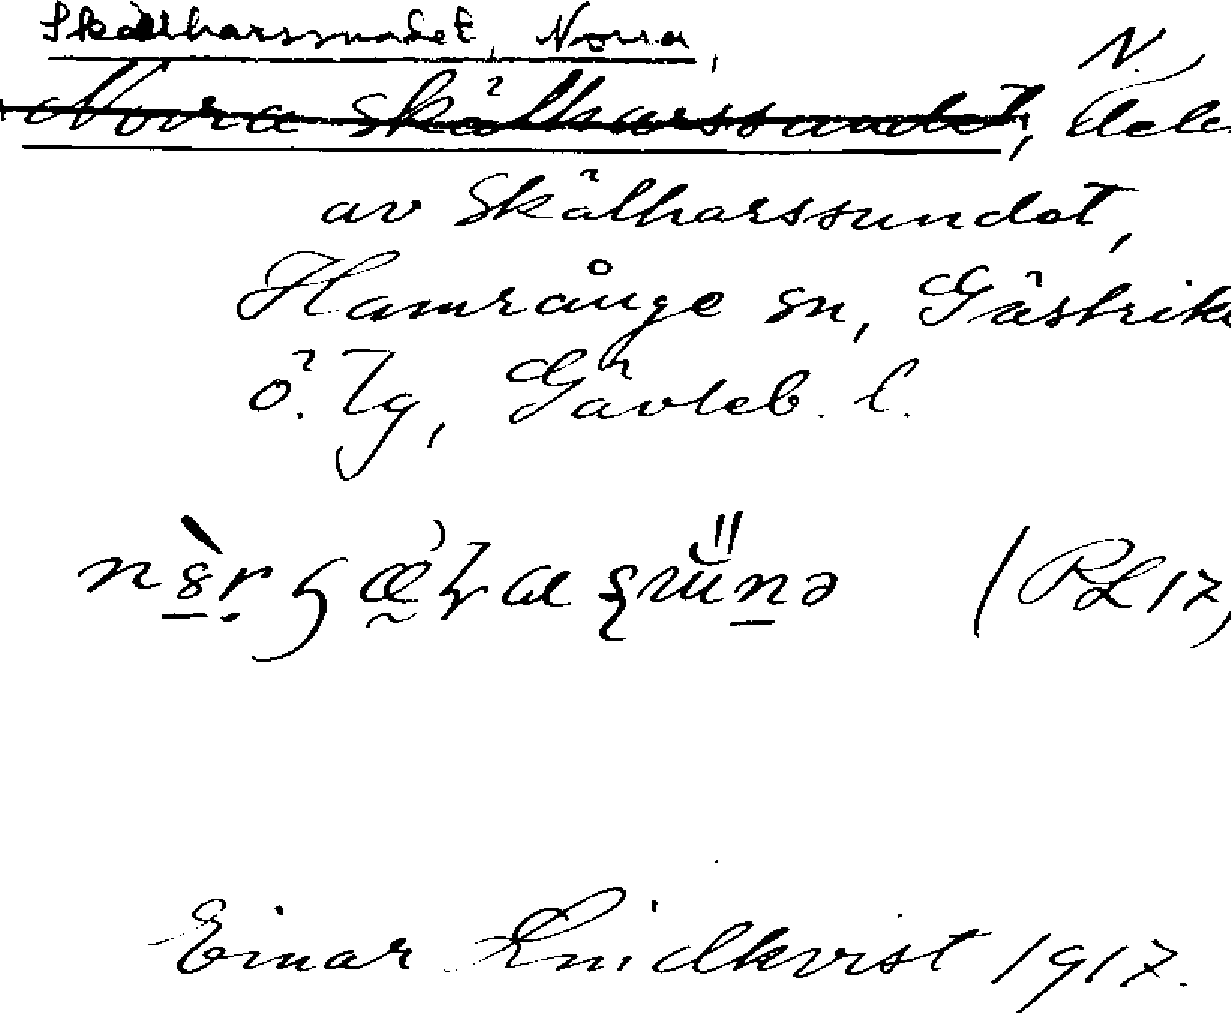 Skälharssundet, Norra,
Norra Skälharssundet, N. delen
av Skälharssundet,
Hamrånge sn, Gästrikl.
ö. Tg, Gävleb. l.
Einar Lindkvist 1917.